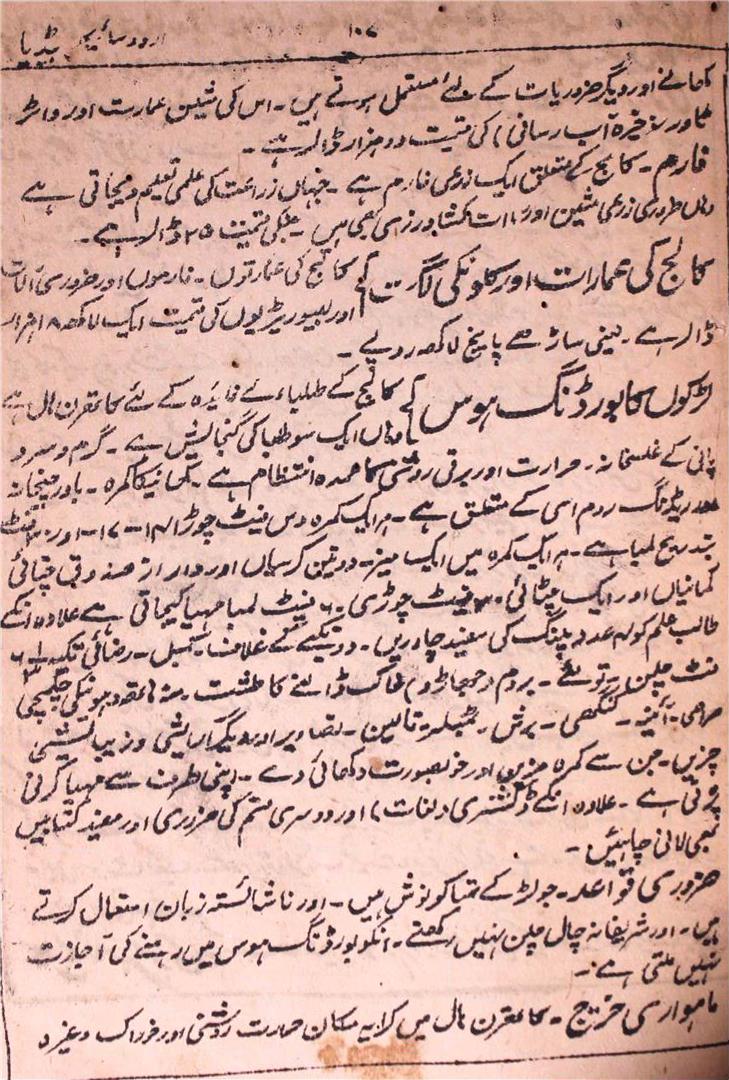 اردو سائیکلو پیڈیا ۱۰۷
کھانے اور دیگر ضروریات کے لئے مستعمل ہوتے ہیں۔ اس کی مشین عمارت اور واٹر
ٹاور (ذخیرہ آب رسانی) کی قیمت دو ہزار ڈالر ہے۔
فارم۔ کالج کے متعلق ایک زرعی فارم ہے۔ جہاں زراعت کی علمی تعلیم دیجاتی ہے
وہاں ضروری زرعی مشین اور آلات کشاورزی بھی ہیں۔ جنکی قیمت ۲۵ ڈالر ہے۔
کالج کی عمارات اور کلونکی لاگت کالج کی عمارتوں۔ فارموں اور ضروری آلات
اور لیبوریٹریوں کی قیمت ایک لاکھ ہزار
ڈالر ہے۔ یعنی ساڑھے پانچ لاکھ روپے۔
لڑکوں کا بورڈنگ ہوس کالج کے طلباء کے فایدہ کے لئے کاتھرن ہال ہے
وہاں ایک سو طلبا کی گنجائش ہے۔ گرم و سرد
پانی کے غسلخانہ۔ حرارت اور برقی روشنی کا عمدہ انتظام ہے۔ کھانیکا کمرہ۔ باورچیخانہ
اور ریڈنگ روم اسی کے متعلق ہے۔ ہر ایک کمرہ دس فیٹ چوڑا ۱۴۔۱۷۔ اور ۲۰ فیٹ
بتدریج لمبا ہے۔ ہر ایک کمرہ میں ایک میز۔ دو تین کرسیاں اور دراز صندوق چپائی
کمانیاں اور ایک چٹائی۔ ۳ فیٹ چوڑی۔ ۶ فیٹ لمبا مہیا کیجاتی ہے علاوہ انکے
طالب علم کو عدد پلنگ کی سفید چادریں۔ دو تکیے کے غلاف۔ کمبل۔ رضائی تکیہ
فٹ چلمن۔ تولئے۔ بروم (جھاڑو) خاک ڈالنے کا طشت۔ منہ ہاتھ دھونیکی چلمچی
صراحی۔ آئینہ۔ کنگھی۔ برش۔ ٹمبلر۔ قالین۔ تصاویر اور دیگر آرایشی و زیبایشی
چزیں۔ جن سے کمرہ مزین اور خوبصورت دکھائی دے۔ اپنی طرف سے مہیا کرنی
پڑتی ہے۔ علاوہ انکے ڈکشنری (لغات) اور دوسری قسم کی ضروری اور مفید کتابیں
بھی لانی چاہئیں۔
ضروری قواعد۔ جو لڑکے تمباکو نوش ہیں۔ اور ناشائستہ زبان استعمال کرتے
ہیں۔ اور شریفانہ چال چلن نہیں رکھتے۔ انکو بورڈنگ ہوس میں رہنے کی اجازت
نہیں ملتی ہے۔
ماہواری خرچ۔ کاتھرن ہال میں کرایہ مکان حرارت روشنی اور خوراک وغیرہ